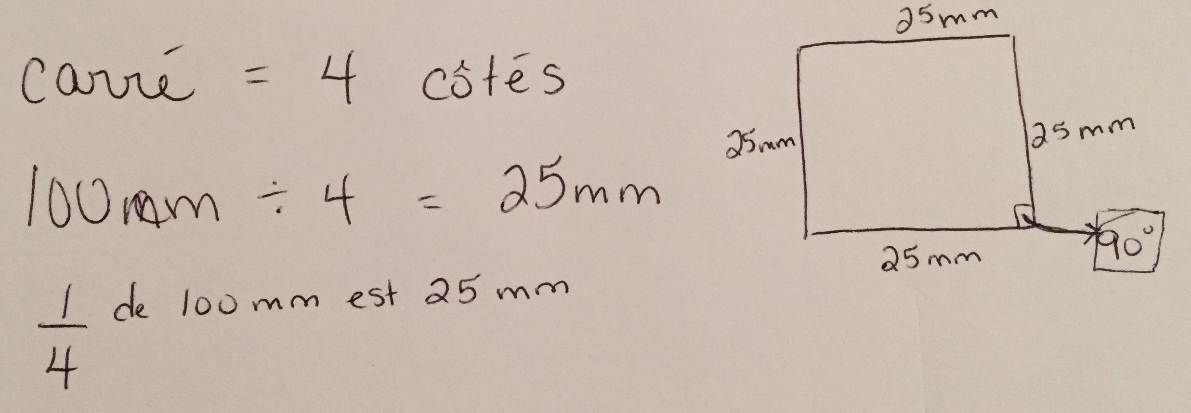 carré = 4 côtés
100mm ÷ 4 = 25mm
1/4 de 100mm est 25mm
25mm
25mm
25mm
25mm
90°